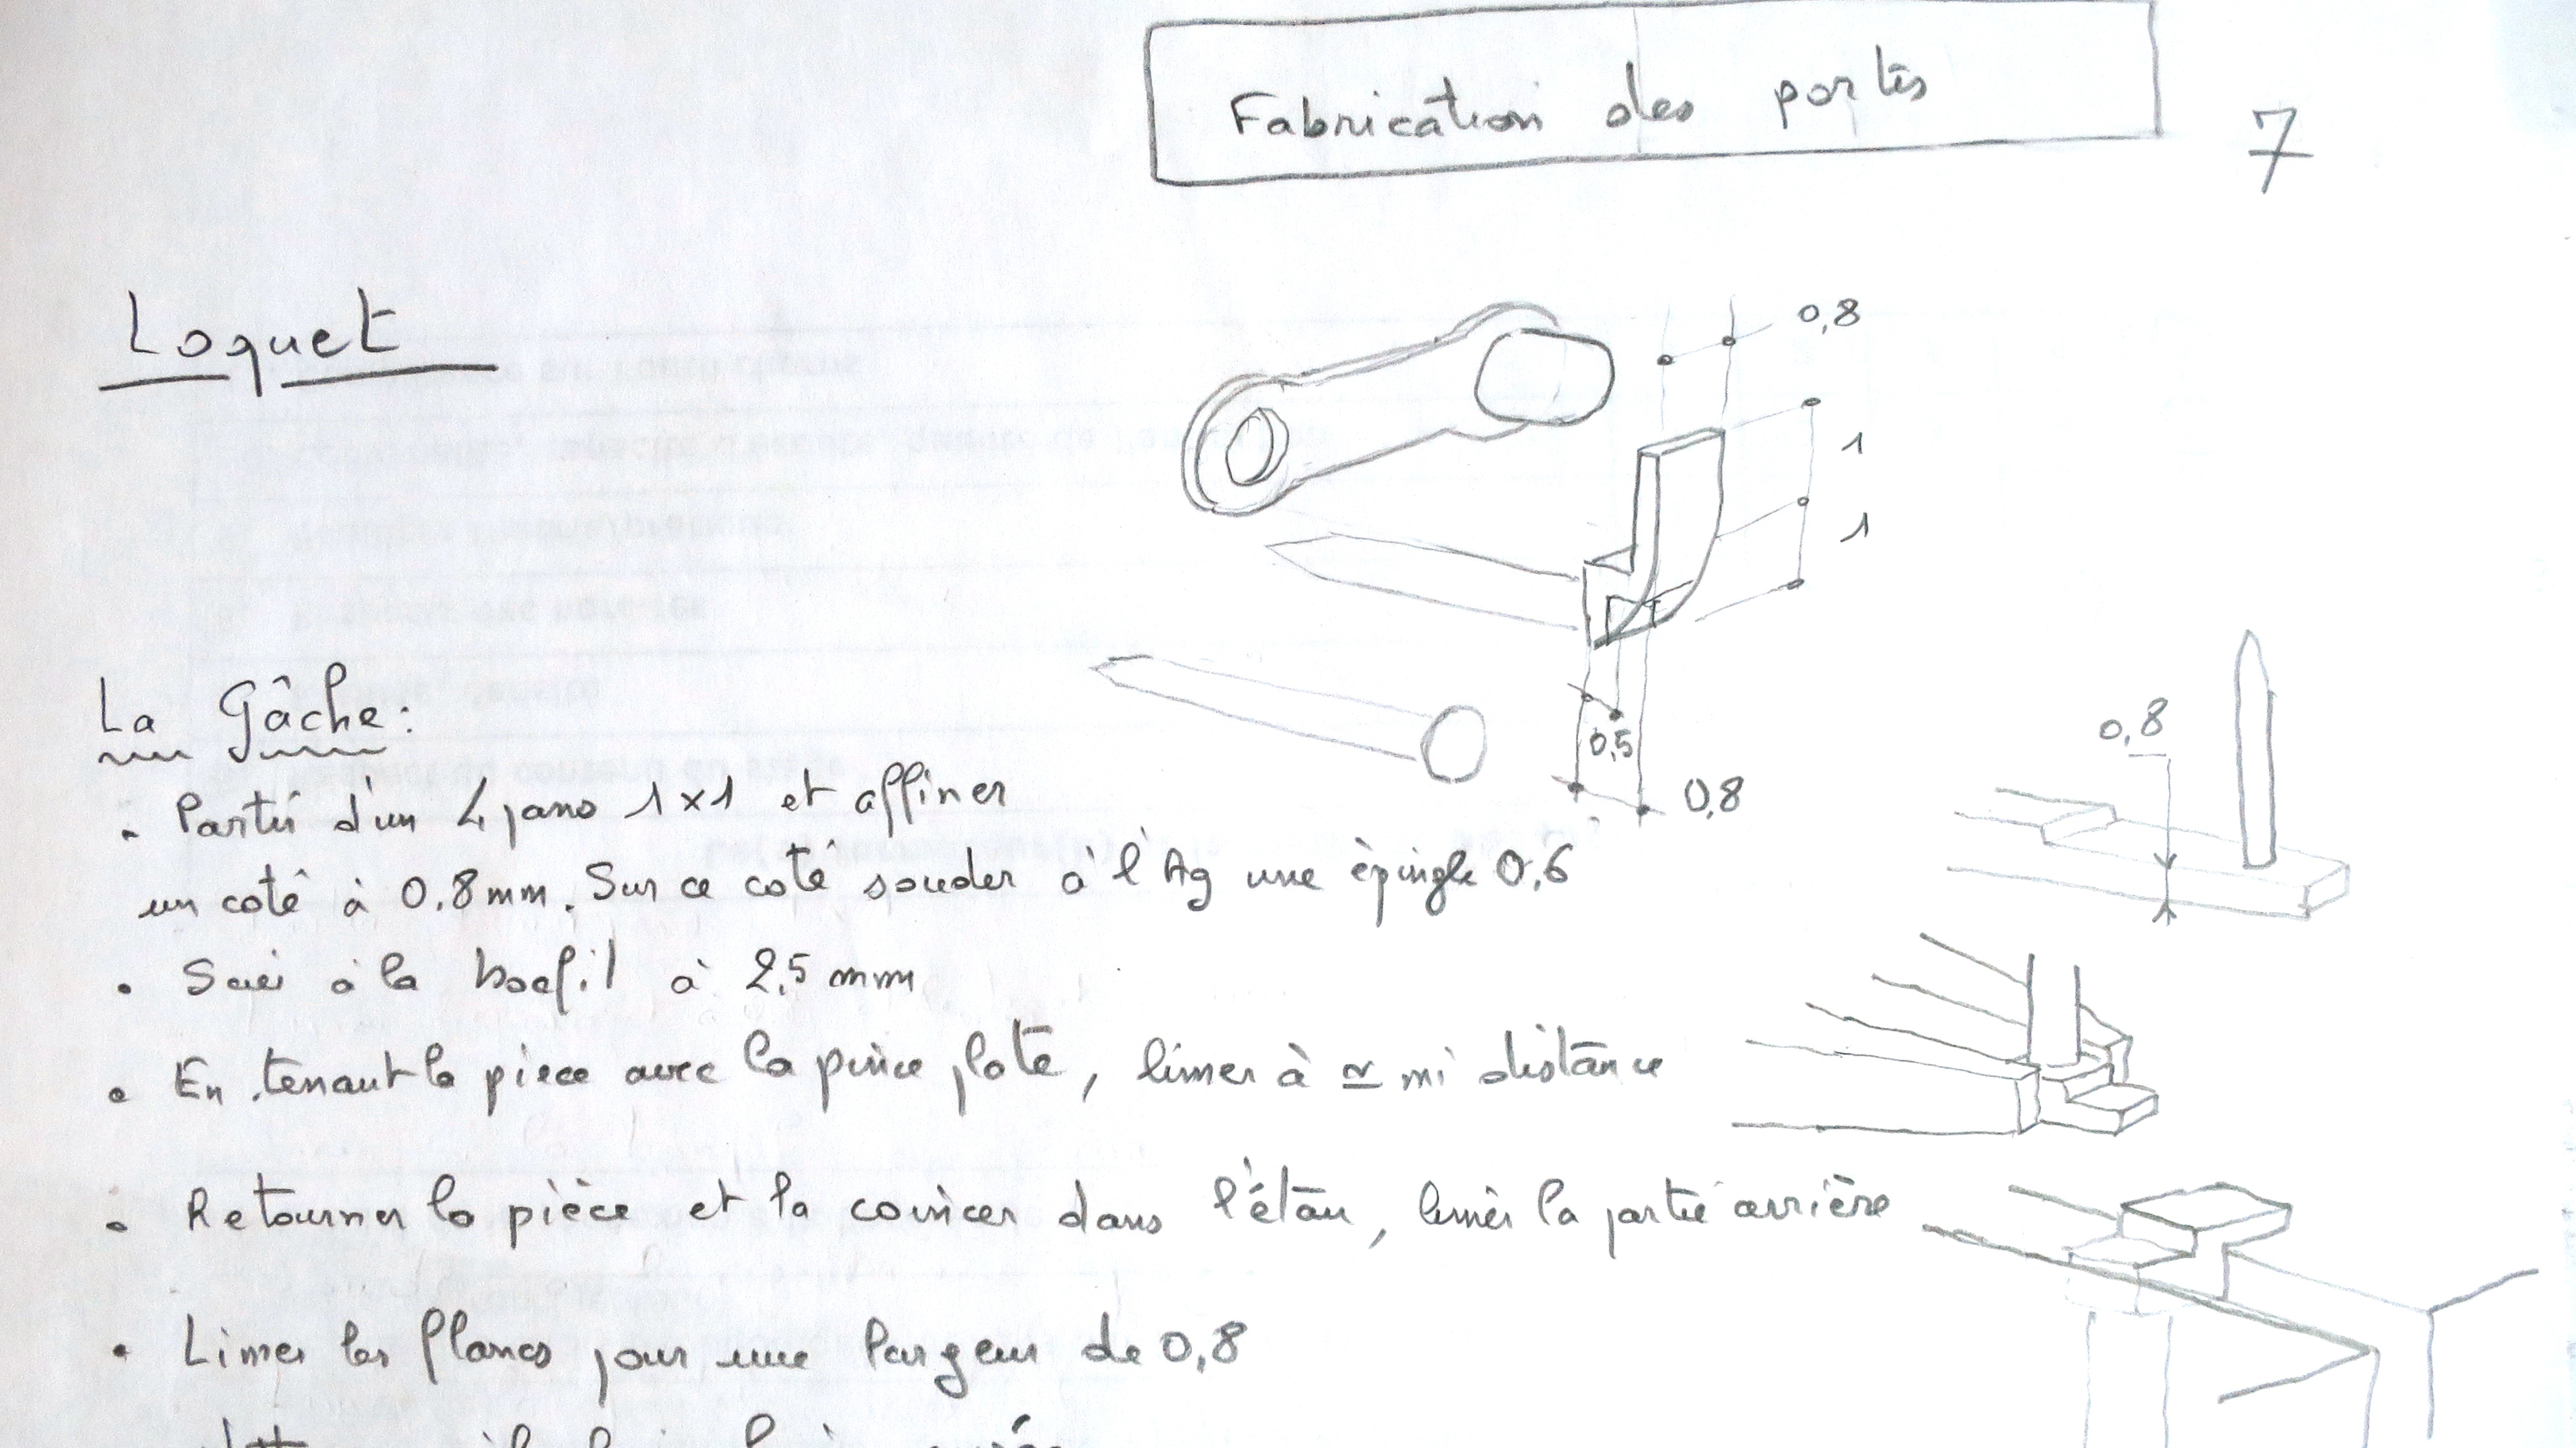 Fabrication des portes
7
Loquet
0,8
1
1
0,5
0,8
0,8
La Gâche:
• Partir d'un 4 pans 1×1 et affiner
un coté à 0.8mm. Sur ce coté souder à l'Ag une épingle 0.6
• Scier à la bocfil à 2,5 mm
• En tenant la piece avec la pince plate, limer à ≃ mi distance
• Retourner la pièce et la coincer dans l'étau, limer la partie arrière
• Limer les flancs pour une largeur de 0,8